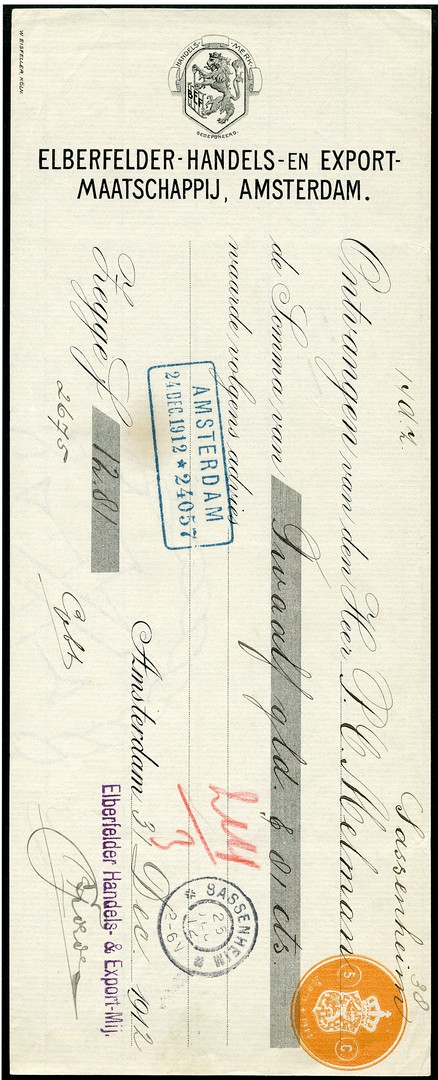 W. EISFELLER, KÖLN.
HANDELS-MERK
GEDEPONEERD.
ELBERFELDER-HANDELS- EN EXPORT-
MAATSCHAPPIJ, AMSTERDAM.
Sassenheim 38
Ontvangen van den Heer P. C. Melman
de Somma van Twaalf gld. & 81 cts
waarde volgens advies
AMSTERDAM
24 DEC. 1912 * 24057
SASSENHEIM
2-6N
Amsterdam 3 Dec. 1912
Zegge f 12.81
Elberfelder Handels- & Export-Mij.
2675
5 C